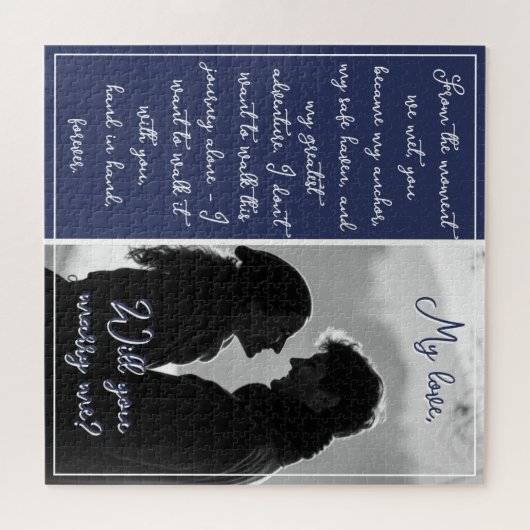 My love,
From the moment
we met, you
became my anchor,
my safe haven, and
my greatest
adventure. I don't
want to walk this
journey alone - I
want to walk it
with you,
hand in hand,
forever.
Will you
marry me?